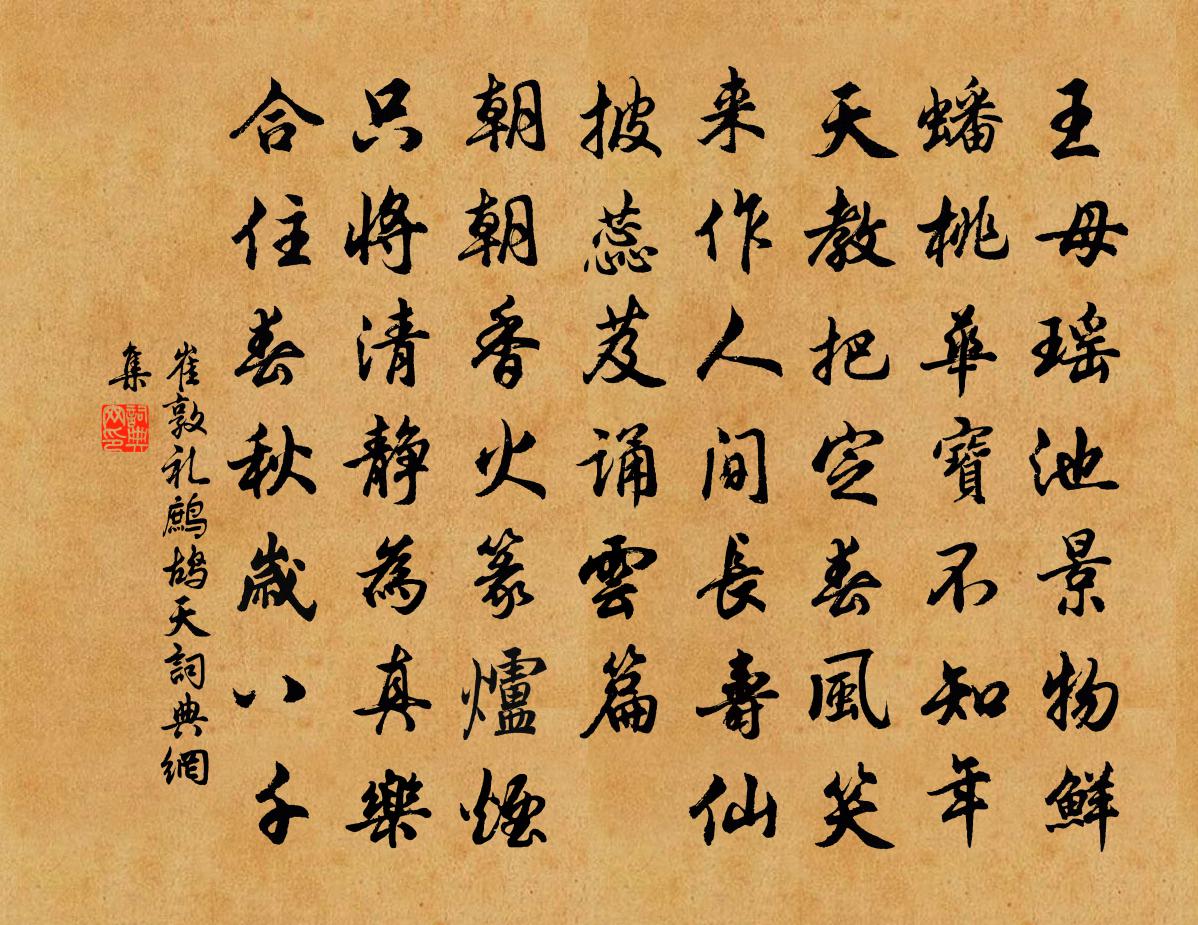 王母瑶池景物鮮
蟠桃華寶不知年
天教把定春風笑
来作人间長壽仙
披蕊芨誦雲篇
朝朝香火篆爐煙
只將清静為真樂
合住春秋歲八千
崔敦礼鷓鴣天詞典網
集
詞典
网印